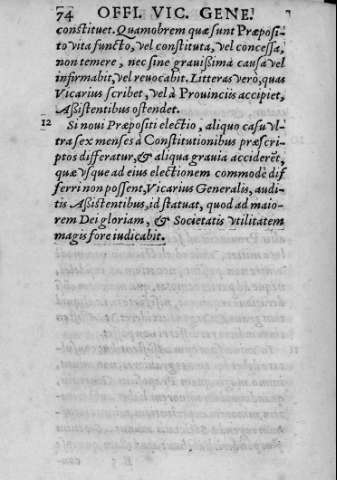 74 OFFI. VIC. GENE.
conſtituet. Quamobrem quæ ſunt Præpoſi-
to vita functo, vel conſtituta, vel conceſſa,
non temere, nec ſine grauiſsima cauſa vel
infirmabit, vel reuocabit. Litteras verò, quas
Vicarius ſcribet, vel à Prouincijs accipiet,
Aßiſtentibus oſtendet.
12 Si noui Præpoſiti electio, aliquo caſu vl-
tra ſex menſes à Conſtitutionibus præſcri-
ptos differatur, & aliqua grauia acciderēt,
quæ vſque ad eius electionem commodè dif
ferri non poſſent, Vicarius Generalis, audi-
tis Aßiſtentibus, id ſtatuat, quod ad maio-
rem Dei gloriam, & Societatis vtilitatem
magis fore iudicabit.